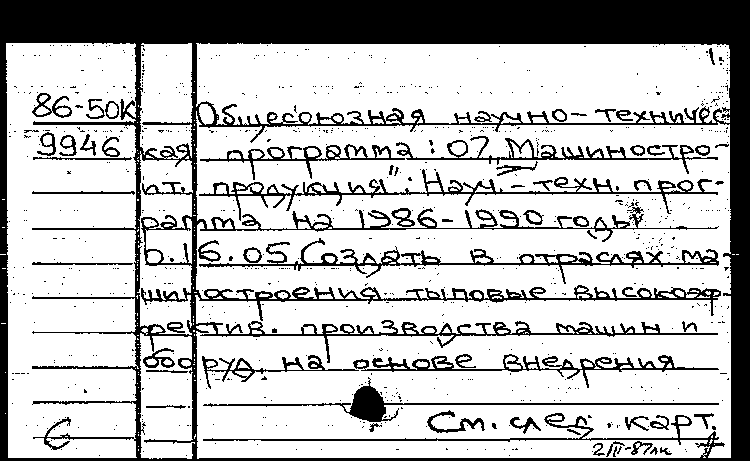 1.
86-50К Общесоюзная научно-техничес
9946 кая программа: 07 „Машиностро-
ит. продукция": Науч.-техн. прог-
рамма на 1986-1990 годы
0.16.05 „Создать в отраслях ма-
шиностроения типовые высокоэф-
фектив. производства машин и
оборуд. на основе внедрения
См. след. карт.
6
2/III-87